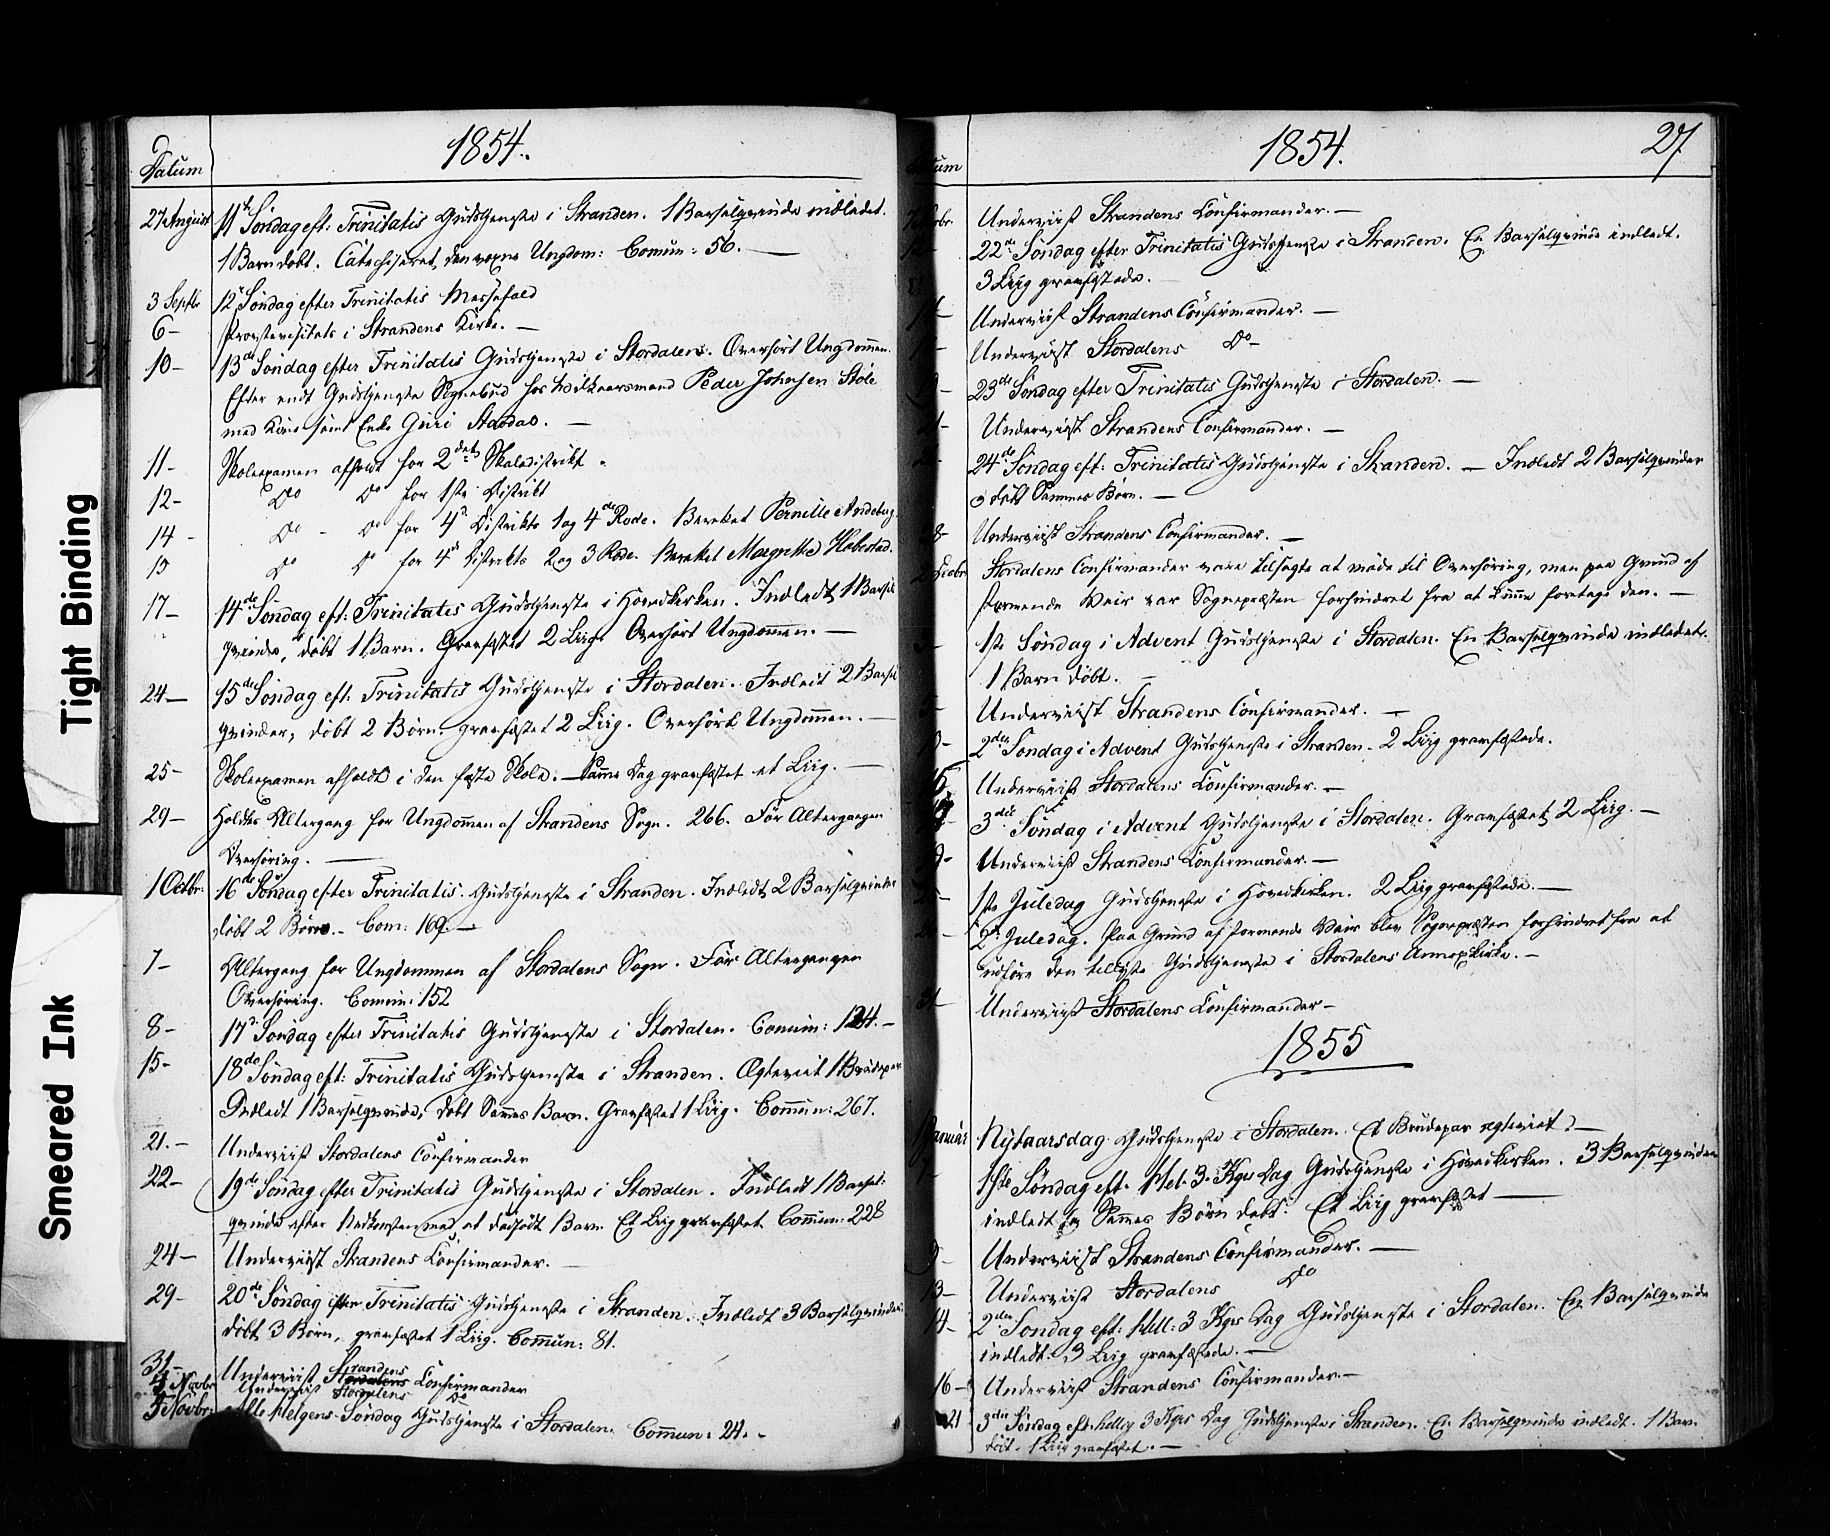 Datum
1854.
27 August 11te Søndag eft: Trinitatis Gudstjeneste i Stranden. 1 Barselqvinde indledet.
1 Barn døbt. Catechiseret den voxne Ungdom: Comun: 56. —
3 Septbr 12te Søndag efter Trinitatis Messefald
6 — Provstevisitats i Strandens Kirke. —
10 — 13de Søndag efter Trinitatis Gudstjeneste i Stordalen. Overhørt Ungdommen.
Efter endt Gudstjeneste Sognebud hos Vilkaarsmand Peder Johnsen
med Kone samt Enke Guri
11 — Skoleexamen afholdt for 2det Skoledistrikt.
12 — Do Do for 1ste Distrikt
14 — Do — Do for 4de Distrikts 1 og 4de Rode. Pernille
15 Do Do for 4de Distrikts 2 og 3 Rode. Margrethe
17 — 14de Søndag eft: Trinitatis Gudstjeneste i Hovedkirken. Indledt 1 Barsel
qvinde, døbt 1 Barn. Gravfæstet 2 Liig. Overhørt Ungdommen. —
24 — 15de Søndag eft. Trinitatis Gudstjeneste i Stordalen. Indledt 2 Barsel
qvinder, døbt 2 Børn, gravfæstet 2 Liig. Overhørt Ungdommen. —
25 — Skoleexamen afholdt i den faste Skole. — Samme Dag gravfæstet et Liig. —
29 — Holdtes Altergang for Ungdommen af Strandens Sogn. 266. Før Altergangen
Overhøring. —
1 Octbr. 16de Søndag efter Trinitatis. Gudstjeneste i Stranden. Indledt 2 Barselqvinder
døbt 2 Børn. — Com: 169. —
7 — Altergang for Ungdommen af Stordalens Sogn. Før Altergangen
Overhøring. Comun: 152
8 — 17de Søndag efter Trinitatis Gudstjeneste i Stordalen. Comun: 124. —
15 — 18de Søndag eft: Trinitatis Gudstjeneste i Stranden. Ægteviet 1 Brudepar
Indledt 1 Barselqvinde, døbt Sammes Barn. Gravfæstet 1 Liig. Comun: 267.
21. — Underviist Stordalens Confirmander
22 — 19de Søndag efter Trinitatis Gudstjeneste i Stordalen. Indledt 1 Barsel:
qvinde efter Nedkomsten med et dødfødt Barn. Et Liig gravfæstet. Comun: 228
24 — Underviist Strandens Confirmander. —
29 — 20de Søndag efter Trinitatis Gudstjeneste i Stranden. Indledt 3 Barselqvinder
døbt 3 Børn, gravfæstet 1 Liig. Comun: 81.
31 — Underviist Strandens Confirmander
4 Novbr Underviist Stordalens Do
5 Novbr. Alle Helgens Søndag Gudstjeneste i Stordalen. Comun: 24. —
1854.
27
Underviist Strandens Confirmander. —
22de Søndag efter Trinitatis Gudstjeneste i Stranden. En Barselqvinde indledt.
3 Liig gravfæstede.
Underviist Strandens Confirmander. —
Underviist Stordalens Do —
23de Søndag efter Trinitatis Gudstjeneste i Stordalen. —
Underviist Strandens Confirmander. —
24de Søndag eft: Trinitatis Gudstjeneste i Stranden. — Indledt 2 Barselqvinder
døbt Sammes Børn. —
Underviist Strandens Confirmander. —
Stordalens Confirmander vare tilsagte at møde til Overhøring, men paa Grund af
stormende Veir var Sognepræsten forhindret fra at kunne foretage den. —
1ste Søndag i Advent Gudstjeneste i Stordalen. En Barselqvinde indledet.
1 Barn døbt. —
Underviist Strandens Confirmander. —
2den Søndag i Advent Gudstjeneste i Stranden. 2 Liig gravfæstede.
Underviist Stordalens Confirmander. —
3die Søndag i Advent Gudstjeneste i Stordalen. Gravfæstet 2 Liig. —
Underviist Strandens Confirmander. —
1ste Juledag Gudstjeneste i Hovedkirken. 2 Liig gravfæstede. —
2d: Juledag. Paa Grund af stormende Veir blev Sognepræsten forhindret fra at
udføre den tillyste Gudstjeneste i Stordalens Annexkirke. —
31 — Underviist Stordalens Confirmander —
1855
Januar Nytaarsdag Gudstjeneste i Stordalen. Et Brudepar ægteviet. —
1ste Søndag eft. Hel. 3. Kgrs Dag Gudstjeneste i Hovedkirken. 3 Barselqvinder
indledt og Sammes Børn døbt. Et Liig gravfæstet —
9 — Underviist Strandens Confirmander. —
13 — Underviist Stordalens Do
14 — 2den Søndag eft: Hell: 3 Kgrs Dag Gudstjeneste i Stordalen. En Barselqvinde
indledt. 3 Liig gravfæstede. —
16 — Underviist Strandens Confirmander. —
21 3die Søndag eft. hellig 3 Kgrs Dag Gudstjeneste i Stranden. En Barselqvinde indledt. 1 Barn
døbt. 1 Liig gravfæstet. —
Tight Binding
Smeared Ink